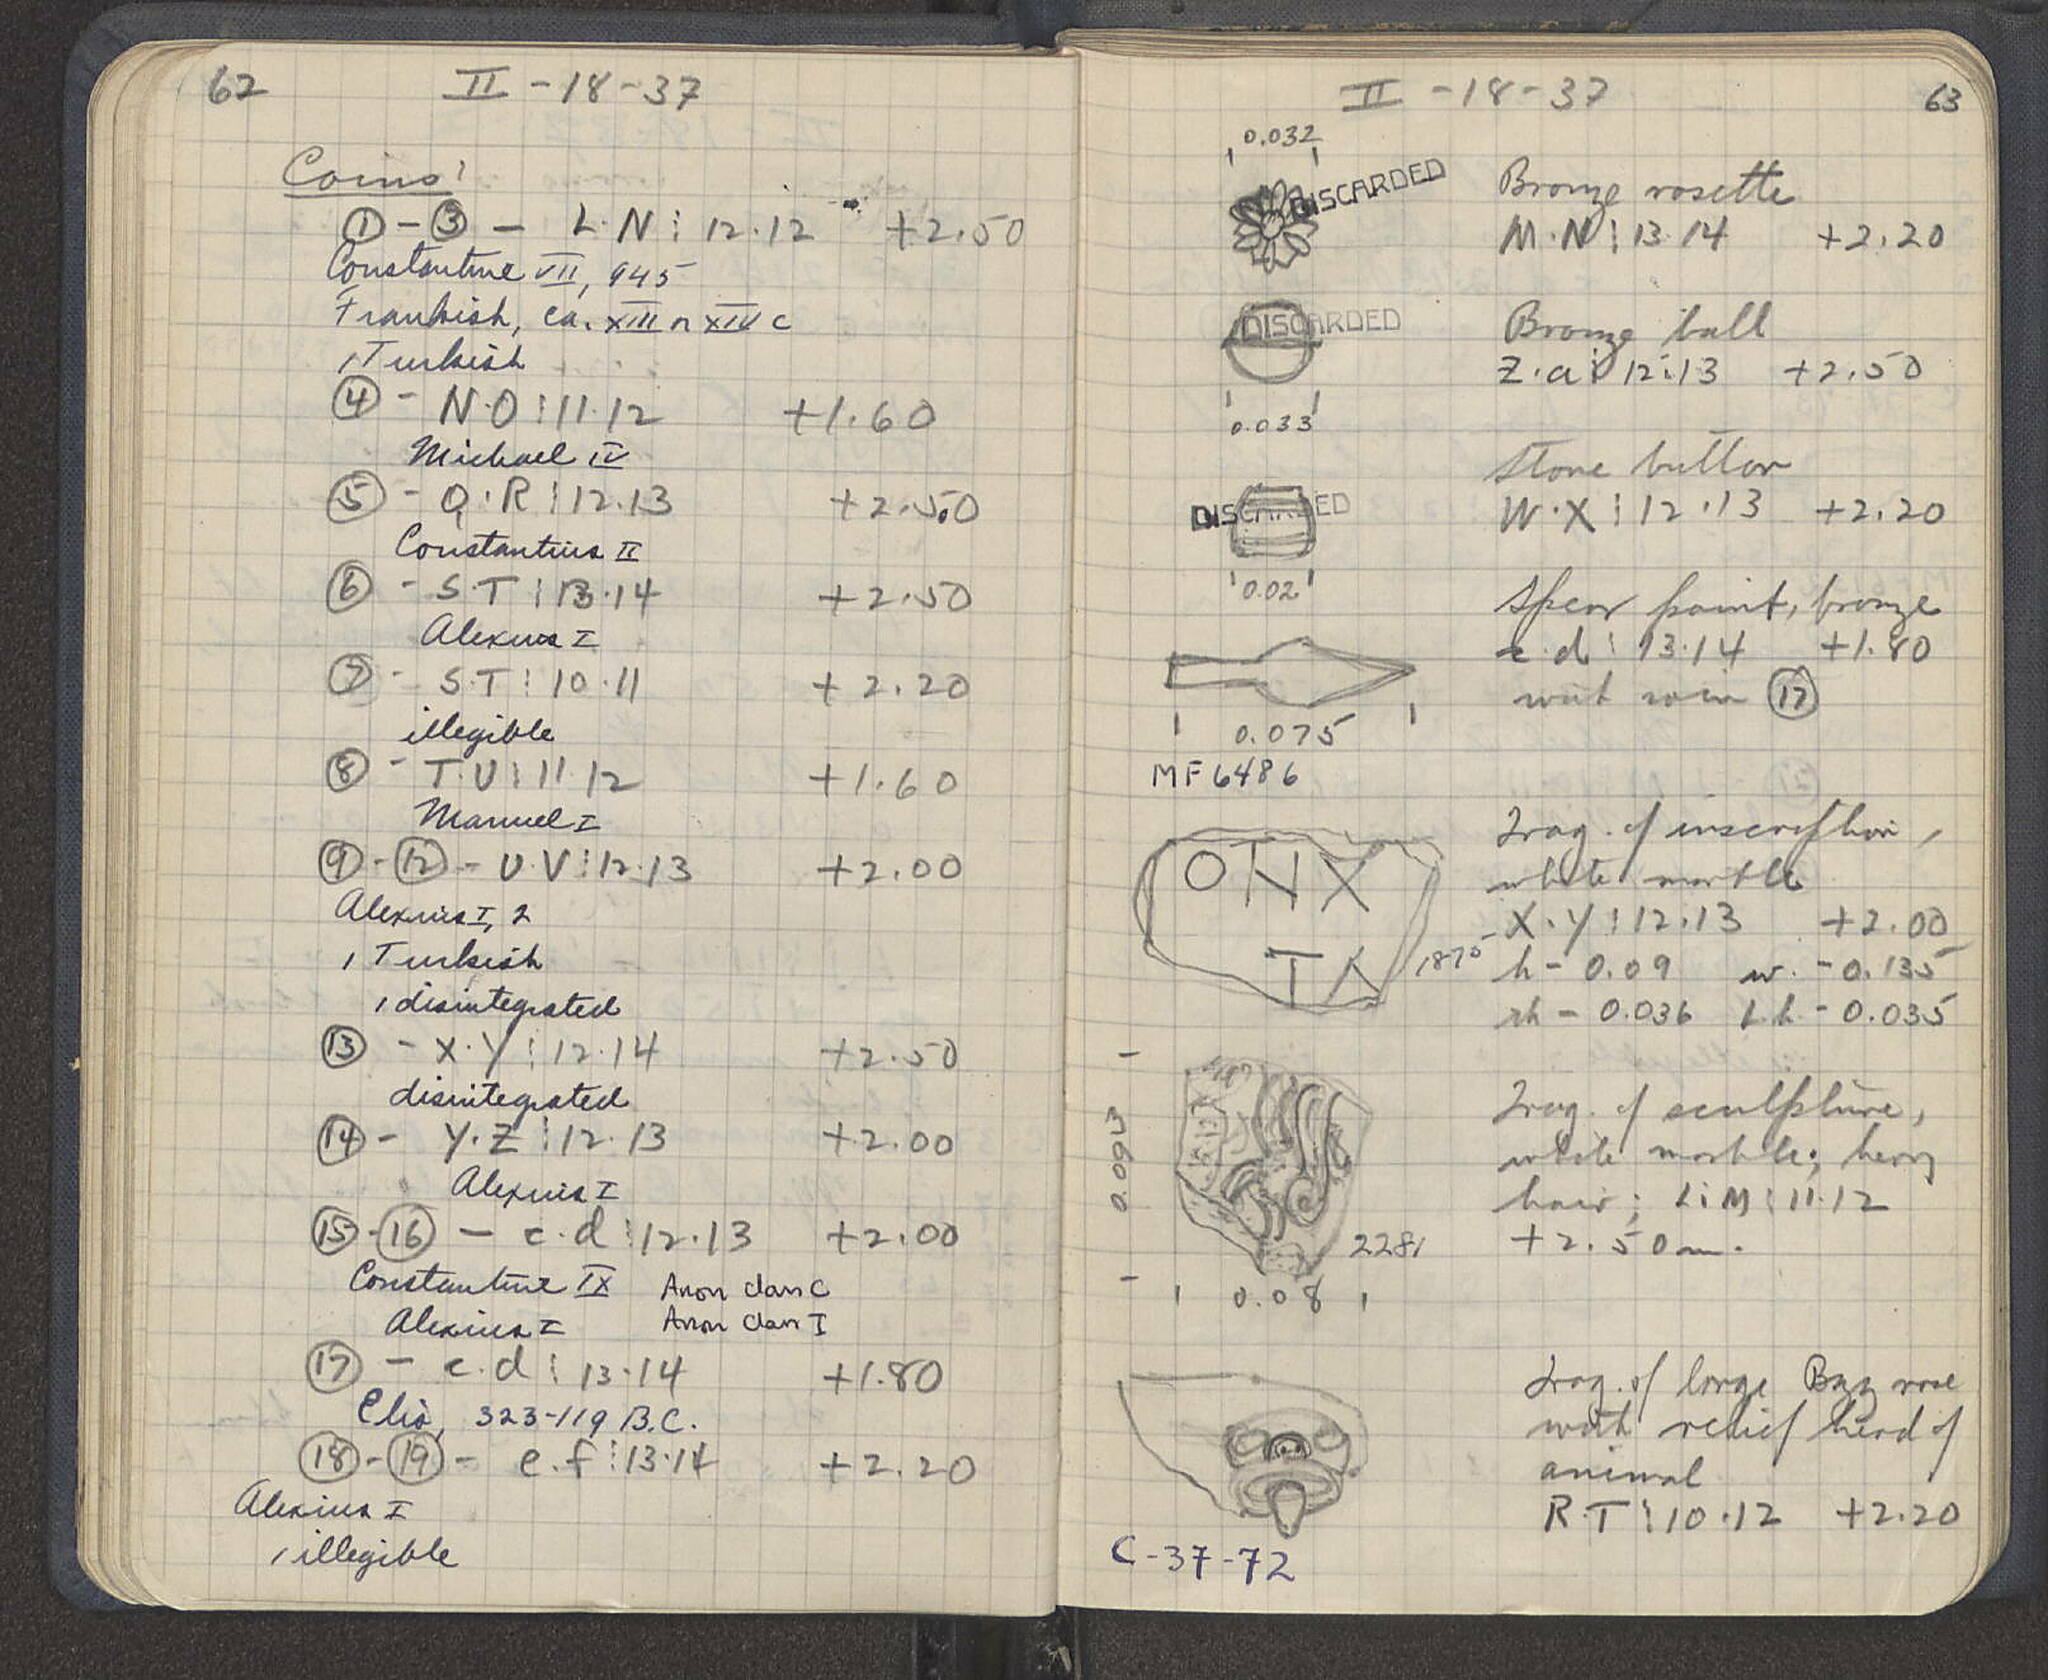 62
II - 18 - 37
Coins:
① - ③ - L.N ⁝ 12.12 +2.50
Constantine VII, 945
Frankish, ca. XIII or XIV c
1 Turkish
④ - N.O ⁝ 11.12 +1.60
Michael IV
⑤ - Q.R ⁝ 12.13 +2.50
Constantius II
⑥ - S.T ⁝ 13.14 +2.50
Alexius I
⑦ - S.T ⁝ 10.11 +2.20
illegible
⑧ - T.U ⁝ 11.12 +1.60
Manuel I
⑨ - ⑫ - U.V ⁝ 12.13 +2.00
Alexius I, 2
1 Turkish
1 disintegrated
⑬ - X.Y ⁝ 12.14 +2.50
disintegrated
⑭ - Y.Z ⁝ 12.13 +2.00
Alexius I
⑮ - ⑯ - c.d ⁝ 12.13 +2.00
Constantine IX Anon class C
Alexius I Anon class I
⑰ - c.d ⁝ 13.14 +1.80
Elis, 323-119 B.C.
⑱ - ⑲ - e.f ⁝ 13.14 +2.20
Alexius I
1 illegible
II - 18 - 37
63
0.032
DISCARDED
Bronze rosette
M.N ⁝ 13.14 +2.20
DISCARDED
Bronze ball
Z.a ⁝ 12.13 +2.50
0.033
Stone button
DISCARDED
W.X ⁝ 12.13 +2.20
0.02
Spear point, bronze
c.d ⁝ 13.14 +1.80
with coin ⑰
0.075
MF 6486
Frag. of inscription,
white marble
ΟΝΧ
ΤΛ
1875
X.Y ⁝ 12.13 +2.00
h - 0.09 w. - 0.135
th - 0.036 L.h. - 0.035
Frag. of sculpture,
white marble; heavy
hair; L.M ⁝ 11.12
+2.50 m.
0.093
2281
0.08
Frag. of large Byz vase
with relief head of
animal
R.T ⁝ 10.12 +2.20
C-37-72